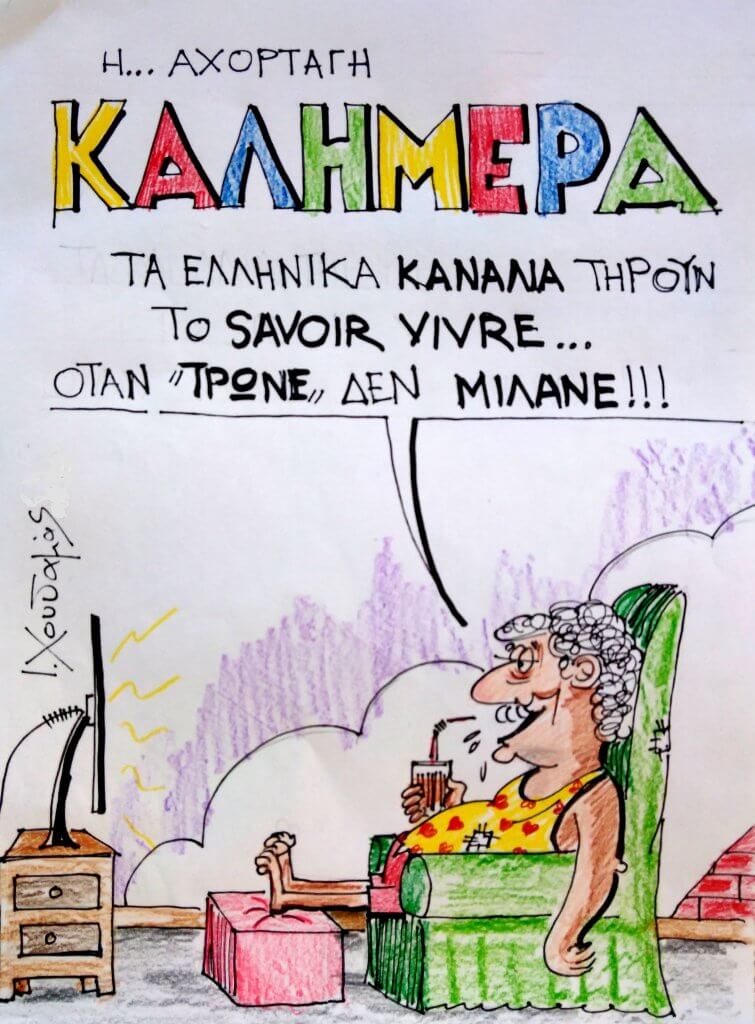 Η... ΑΧΟΡΤΑΓΗ
ΚΑΛΗΜΕΡΑ
ΤΑ ΕΛΛΗΝΙΚΑ ΚΑΝΑΛΙΑ ΤΗΡΟΥΝ
ΤΟ SAVOIR VIVRE...
ΟΤΑΝ „ΤΡΩΝΕ„ ΔΕΝ ΜΙΛΑΝΕ!!!
Ι. Χουδαλάς